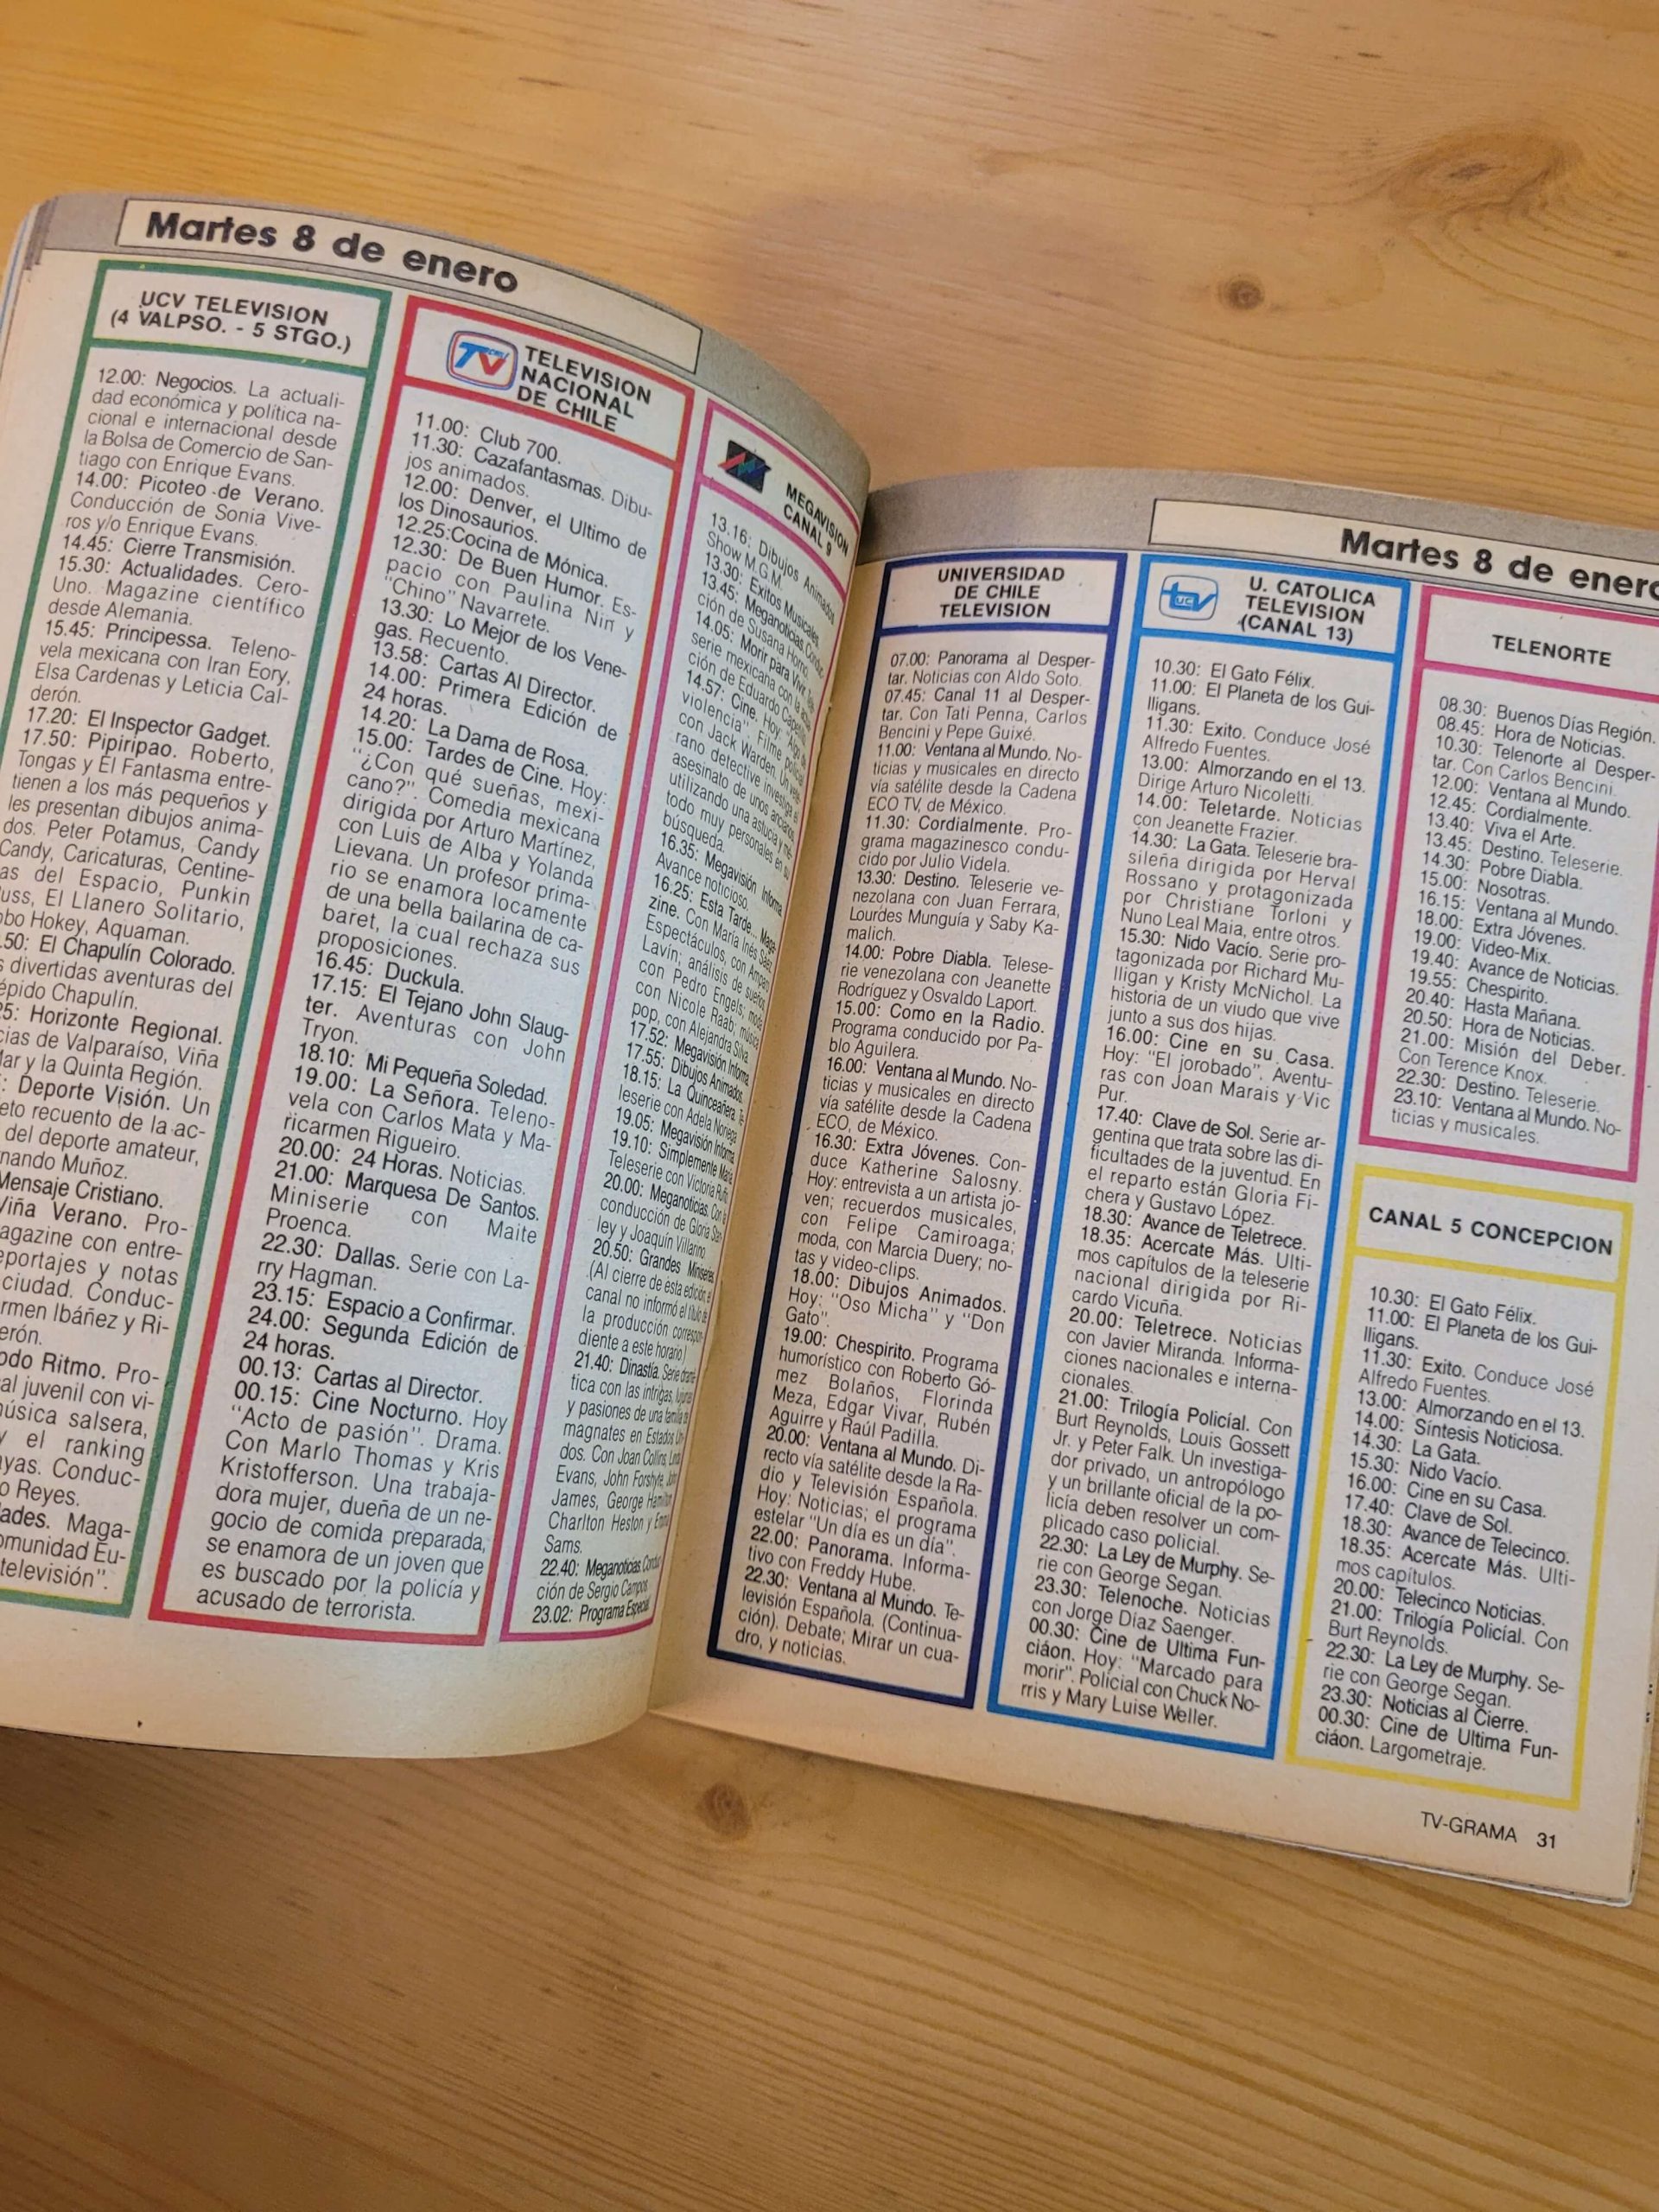 Martes 8 de enero
UCV TELEVISION
(4 VALPSO. - 5 STGO.)
12.00: Negocios. La actuali-
dad económica y política na-
cional e internacional desde
la Bolsa de Comercio de San-
tiago con Enrique Evans.
14.00: Picoteo de Verano.
Conducción de Sonia Vive-
ros y/o Enrique Evans.
14.45: Cierre Transmisión.
15.30: Actualidades. Cero-
Uno. Magazine científico
desde Alemania.
15.45: Principessa. Teleno-
vela mexicana con Iran Eory,
Elsa Cardenas y Leticia Cal-
derón.
17.20: El Inspector Gadget.
17.50: Pipiripao. Roberto,
Tongas y El Fantasma entre-
tienen a los más pequeños y
les presentan dibujos anima-
dos. Peter Potamus, Candy
Candy, Caricaturas, Centine-
as del Espacio, Punkin
uss, El Llanero Solitario,
obo Hokey, Aquaman.
.50: El Chapulín Colorado.
s divertidas aventuras del
épido Chapulín.
25: Horizonte Regional.
cias de Valparaíso, Viña
Mar y la Quinta Región.
: Deporte Visión. Un
eto recuento de la ac-
del deporte amateur,
nando Muñoz.
Mensaje Cristiano.
Viña Verano. Pro-
agazine con entre-
eportajes y notas
ciudad. Conduc-
rmen Ibáñez y Ri-
erón.
odo Ritmo. Pro-
al juvenil con vi-
núsica salsera,
y el ranking
yas. Conduc-
o Reyes.
ades. Maga-
omunidad Eu-
televisión".
TV CHILE TELEVISION
NACIONAL
DE CHILE
11.00: Club 700.
11.30: Cazafantasmas. Dibu-
jos animados.
12.00: Denver, el Ultimo de
los Dinosaurios.
12.25:Cocina de Mónica.
12.30: De Buen Humor. Es-
pacio con Paulina Nin y
"Chino" Navarrete.
13.30: Lo Mejor de los Vene-
gas. Recuento.
13.58: Cartas Al Director.
14.00: Primera Edición de
24 horas.
14.20: La Dama de Rosa.
15.00: Tardes de Cine. Hoy:
"¿Con qué sueñas, mexi-
cano?". Comedia mexicana
dirigida por Arturo Martínez,
con Luis de Alba y Yolanda
Lievana. Un profesor prima-
rio se enamora locamente
de una bella bailarina de ca-
baret, la cual rechaza sus
proposiciones.
16.45: Duckula.
17.15: El Tejano John Slaug-
ter. Aventuras con John
Tryon.
18.10: Mi Pequeña Soledad.
19.00: La Señora. Teleno-
vela con Carlos Mata y Ma-
ricarmen Rigueiro.
20.00: 24 Horas. Noticias.
21.00: Marquesa De Santos.
Miniserie con Maite
Proenca.
22.30: Dallas. Serie con La-
rry Hagman.
23.15: Espacio a Confirmar.
24.00: Segunda Edición de
24 horas.
00.13: Cartas al Director.
00.15: Cine Nocturno. Hoy
"Acto de pasión". Drama.
Con Marlo Thomas y Kris
Kristofferson. Una trabaja-
dora mujer, dueña de un ne-
gocio de comida preparada,
se enamora de un joven que
es buscado por la policía y
acusado de terrorista.
MEGAVISION
CANAL 9
13.16: Dibujos Animados
Show M.G.M.
13.30: Exitos Musicales.
13.45: Meganoticias. Conduc-
ción de Susana Horno.
14.05: Morir para Vivir. Tele-
serie mexicana con la actua-
ción de Eduardo Capetillo.
14.57: Cine. Hoy: "Algo de
violencia". Filme policial
con Jack Warden. Un vete-
rano detective investiga el
asesinato de unos ancianos,
utilizando una astucia y mé-
todo muy personales en su
búsqueda.
16.35: Megavisión Informa
Avance noticioso.
16.25: Esta Tarde... Maga-
zine. Con María Inés Sáez.
Espectáculos, con Amparo
Lavín; análisis de sueños,
con Pedro Engels; moda
con Nicole Raab; música
pop, con Alejandra Silva.
17.52: Megavisión Informa
17.55: Dibujos Animados.
18.15: La Quinceañera. Te-
leserie con Adela Noriega
19.05: Megavisión Informa
19.10: Simplemente María
Teleserie con Victoria Ruffo
20.00: Meganoticias. Con la
conducción de Gloria Stan-
ley y Joaquín Villarino
20.50: Grandes Miniseries
(Al cierre de esta edición, el
canal no informó el título de
la producción correspon-
diente a este horario)
21.40: Dinastía. Serie dramá-
tica con las intrigas, lujurias
y pasiones de una familia de
magnates en Estados Uni-
dos. Con Joan Collins, Linda
Evans, John Forshyte, John
James, George Hamilton,
Charlton Heston y Emma
Sams.
22.40: Meganoticias. Conduc-
ción de Sergio Campos
23.02: Programa Especial
Martes 8 de enero
UNIVERSIDAD
DE CHILE
TELEVISION
07.00: Panorama al Desper-
tar. Noticias con Aldo Soto.
07.45: Canal 11 al Desper-
tar. Con Tati Penna, Carlos
Bencini y Pepe Guixé.
11.00: Ventana al Mundo. No-
ticias y musicales en directo
vía satélite desde la Cadena
ECO TV, de México.
11.30: Cordialmente. Pro-
grama magazinesco condu-
cido por Julio Videla.
13.30: Destino. Teleserie ve-
nezolana con Juan Ferrara,
Lourdes Munguía y Saby Ka-
malich.
14.00: Pobre Diabla. Telese-
rie venezolana con Jeanette
Rodríguez y Osvaldo Laport.
15.00: Como en la Radio.
Programa conducido por Pa-
blo Aguilera.
16.00: Ventana al Mundo. No-
ticias y musicales en directo
vía satélite desde la Cadena
ECO, de México.
16.30: Extra Jóvenes. Con-
duce Katherine Salosny.
Hoy: entrevista a un artista jo-
ven; recuerdos musicales,
con Felipe Camiroaga;
moda, con Marcia Duery; no-
tas y video-clips.
18.00: Dibujos Animados.
Hoy: "Oso Micha" y "Don
Gato".
19.00: Chespirito. Programa
humorístico con Roberto Gó-
mez Bolaños, Florinda
Meza, Edgar Vivar, Rubén
Aguirre y Raúl Padilla.
20.00: Ventana al Mundo. Di-
recto vía satélite desde la Ra-
dio y Televisión Española.
Hoy: Noticias; el programa
estelar "Un día es un día".
22.00: Panorama. Informa-
tivo con Freddy Hube.
22.30: Ventana al Mundo. Te-
levisión Española. (Continua-
ción). Debate; Mirar un cua-
dro, y noticias.
tv UC U. CATOLICA
TELEVISION
(CANAL 13)
10.30: El Gato Félix.
11.00: El Planeta de los Gui-
lligans.
11.30: Exito. Conduce José
Alfredo Fuentes.
13.00: Almorzando en el 13.
Dirige Arturo Nicoletti.
14.00: Teletarde. Noticias
con Jeanette Frazier.
14.30: La Gata. Teleserie bra-
sileña dirigida por Herval
Rossano y protagonizada
por Christiane Torloni y
Nuno Leal Maia, entre otros.
15.30: Nido Vacío. Serie pro-
tagonizada por Richard Mu-
lligan y Kristy McNichol. La
historia de un viudo que vive
junto a sus dos hijas.
16.00: Cine en su Casa.
Hoy: "El jorobado". Aventu-
ras con Joan Marais y Vic
Pur.
17.40: Clave de Sol. Serie ar-
gentina que trata sobre las di-
ficultades de la juventud. En
el reparto están Gloria Fi-
chera y Gustavo López.
18.30: Avance de Teletrece.
18.35: Acercate Más. Ulti-
mos capítulos de la teleserie
nacional dirigida por Ri-
cardo Vicuña.
20.00: Teletrece. Noticias
con Javier Miranda. Informa-
ciones nacionales e interna-
cionales.
21.00: Trilogía Policíal. Con
Burt Reynolds, Louis Gossett
Jr. y Peter Falk. Un investiga-
dor privado, un antropólogo
y un brillante oficial de la po-
licía deben resolver un com-
plicado caso policial.
22.30: La Ley de Murphy. Se-
rie con George Segan.
23.30: Telenoche. Noticias
con Jorge Díaz Saenger.
00.30: Cine de Ultima Fun-
ciáon. Hoy: "Marcado para
morir". Policial con Chuck No-
rris y Mary Luise Weller.
TELENORTE
08.30: Buenos Días Región.
08.45: Hora de Noticias.
10.30: Telenorte al Desper-
tar. Con Carlos Bencini.
12.00: Ventana al Mundo.
12.45: Cordialmente.
13.40: Viva el Arte.
13.45: Destino. Teleserie.
14.30: Pobre Diabla.
15.00: Nosotras.
16.15: Ventana al Mundo.
18.00: Extra Jóvenes.
19.00: Video-Mix.
19.40: Avance de Noticias.
19.55: Chespirito.
20.40: Hasta Mañana.
20.50: Hora de Noticias.
21.00: Misión del Deber.
Con Terence Knox.
22.30: Destino. Teleserie.
23.10: Ventana al Mundo. No-
ticias y musicales.
CANAL 5 CONCEPCION
10.30: El Gato Félix.
11.00: El Planeta de los Gui-
lligans.
11.30: Exito. Conduce José
Alfredo Fuentes.
13.00: Almorzando en el 13.
14.00: Síntesis Noticiosa.
14.30: La Gata.
15.30: Nido Vacío.
16.00: Cine en su Casa.
17.40: Clave de Sol.
18.30: Avance de Telecinco.
18.35: Acercate Más. Ulti-
mos capítulos.
20.00: Telecinco Noticias.
21.00: Trilogía Policíal. Con
Burt Reynolds.
22.30: La Ley de Murphy. Se-
rie con George Segan.
23.30: Noticias al Cierre.
00.30: Cine de Ultima Fun-
ciáon. Largometraje.
TV-GRAMA 31